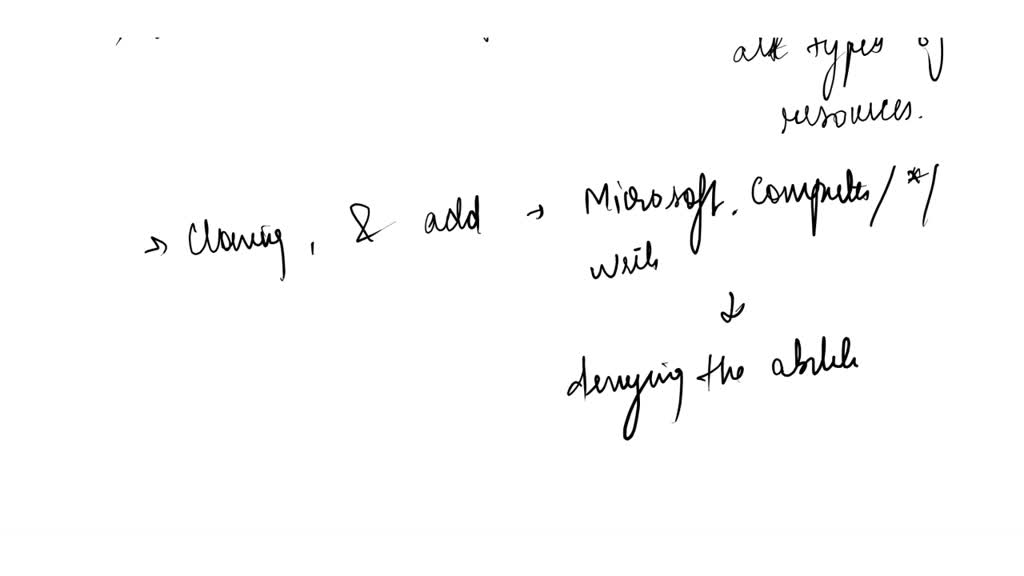 all types of
resources.
→ Cloning, & add → Microsoft. Compute/*/
write
↓
denying the